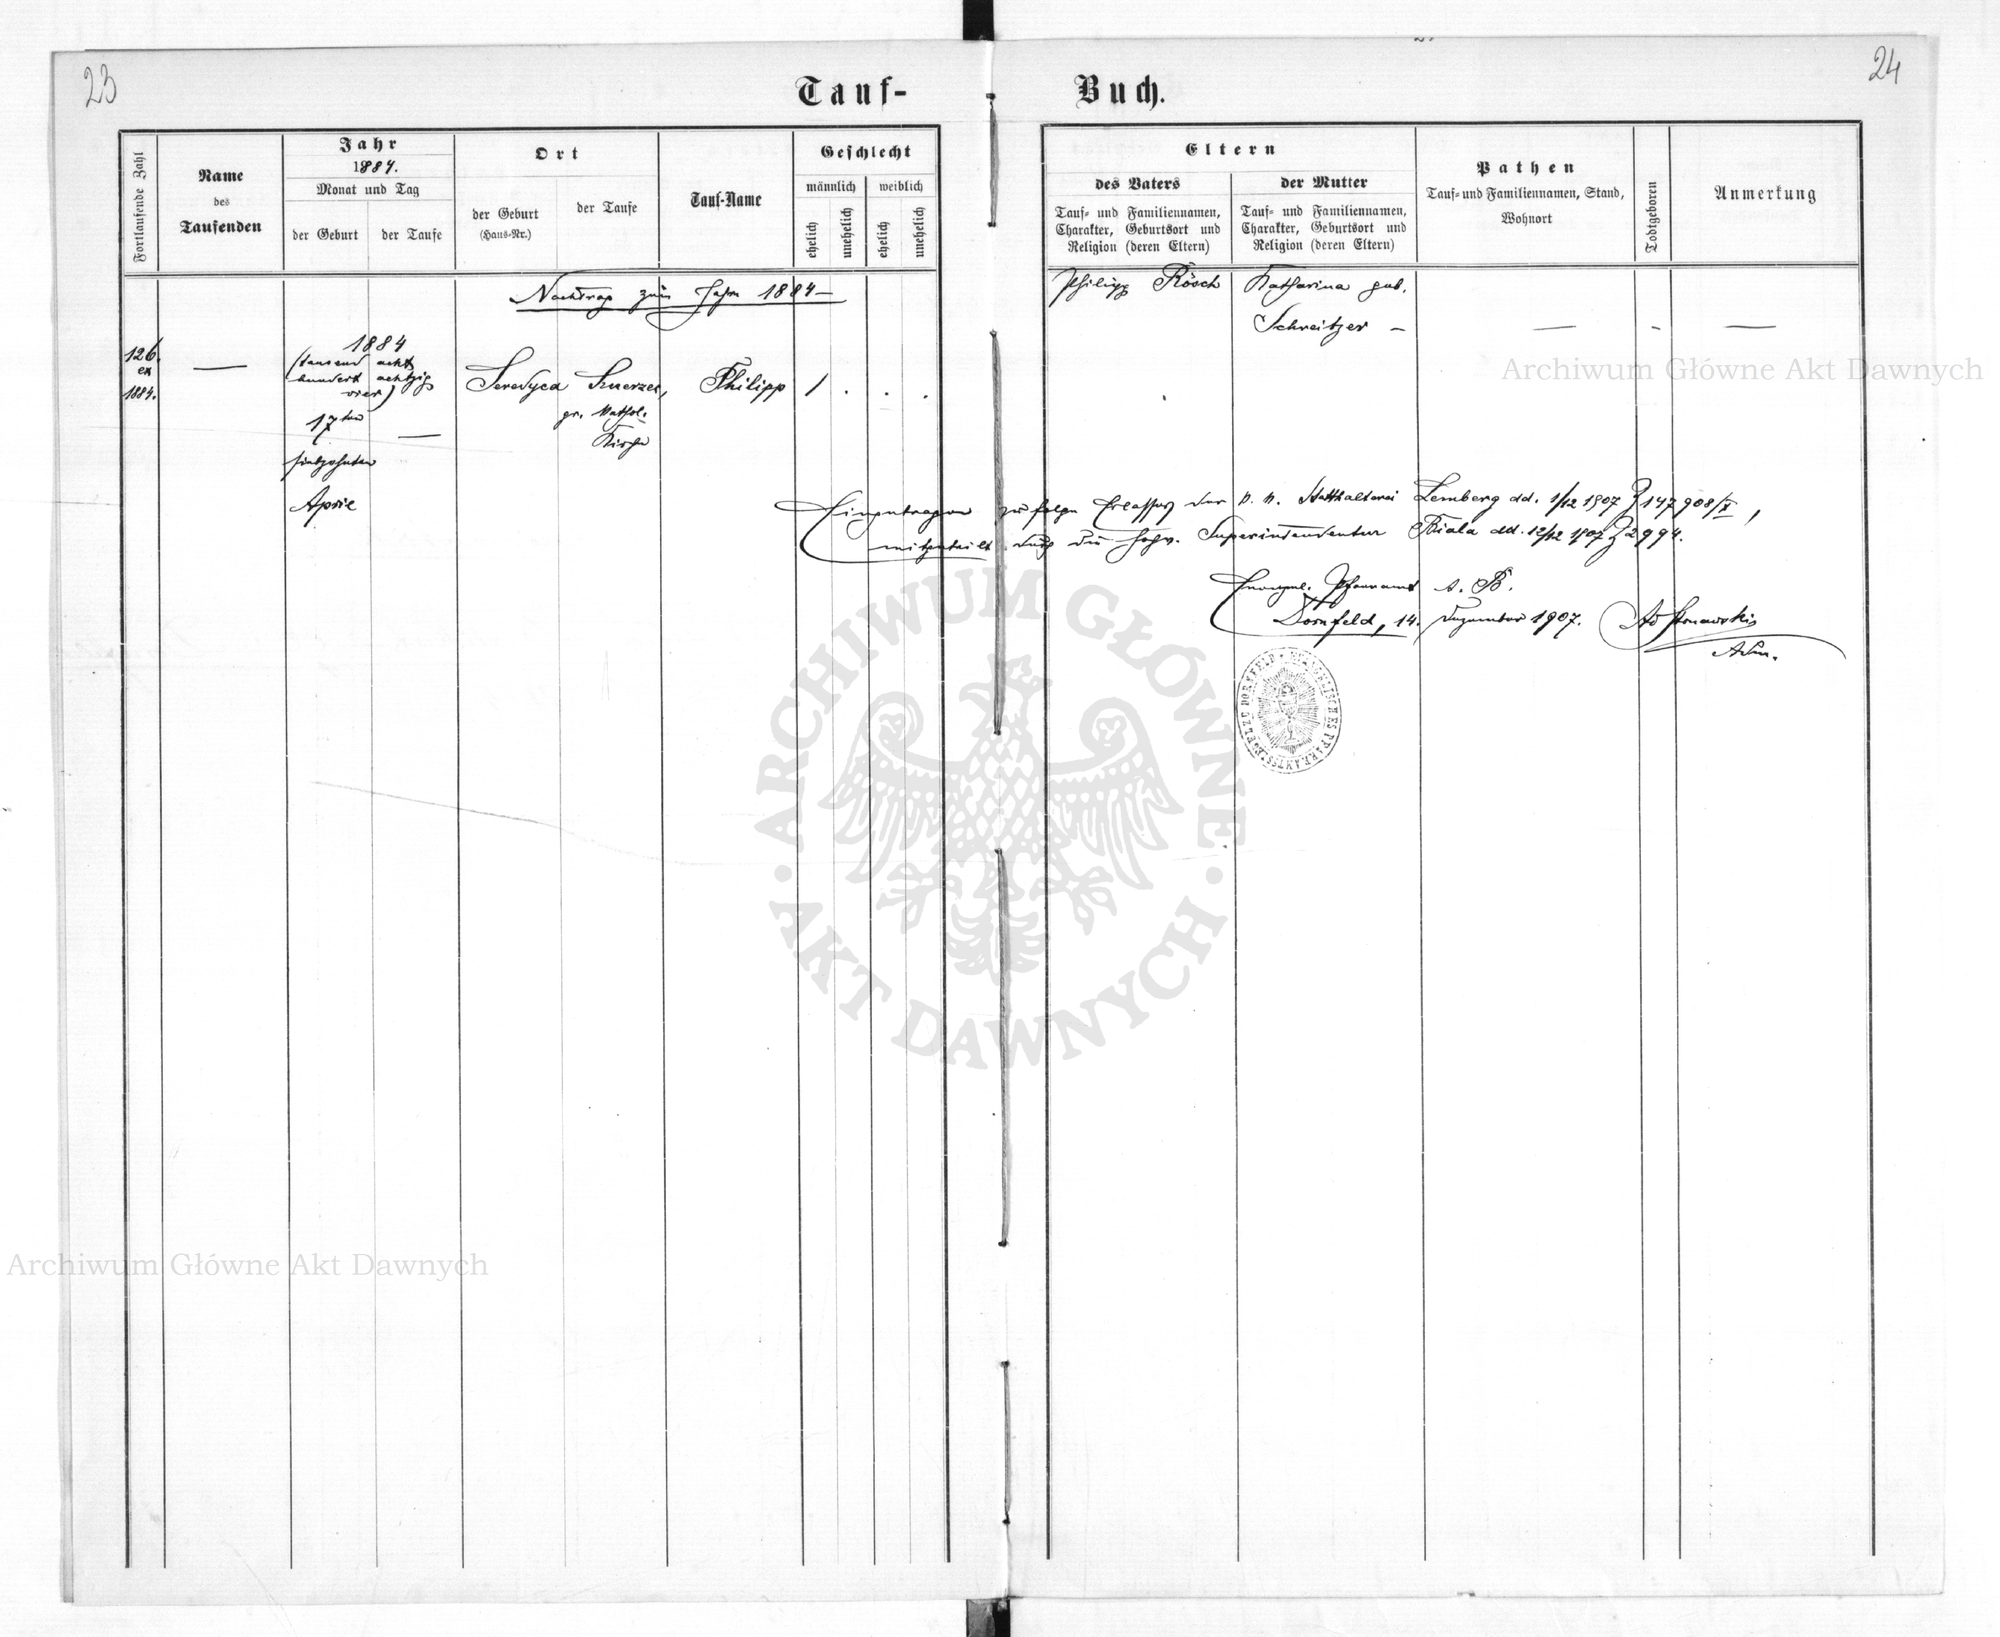 23
24
Tauf-
Buch.
Fortlaufende Zahl
Name
des
Taufenden
Jahr
1884.
Monat und Tag
der Geburt
der Taufe
Ort
der Geburt
(Haus-Nr.)
der Taufe
Tauf-Name
Geschlecht
männlich
weiblich
ehelich
unehelich
ehelich
unehelich
Eltern
des Vaters
Tauf- und Familiennamen,
Charakter, Geburtsort und
Religion (deren Eltern)
der Mutter
Tauf- und Familiennamen,
Charakter, Geburtsort und
Religion (deren Eltern)
Pathen
Tauf- und Familiennamen, Stand,
Wohnort
Todtgeboren
Anmerkung
Nachtrag zum Jahre 1884 —
126.
ex
1884.
—
1884
(tausend acht
hundert achtzig
vier)
17ten
siebzehnten
April
—
Seredyca
Szczerzec,
gr. kathol.
Kirche
Philipp
1 . . .
Philipp Rösch
Katharina geb.
Schweitzer —
— - —
Eingetragen zu folge Erlasses der k. k. Statthalterei Lemberg dd. 1/12 1907 Z 147908/X,
mitgeteilt durch die hohe. Superintendentur Biala dd. 12/12 1907 Z 2994.
Evangel. Pfarramt A. B.
Dornfeld, 14. Dezember 1907.
Adm.
EVANGELISCHES PFARRAMTSSIEGEL ZU DORNFELD
Archiwum Główne Akt Dawnych
ARCHIWUM GŁÓWNE
AKT DAWNYCH
Archiwum Główne Akt Dawnych